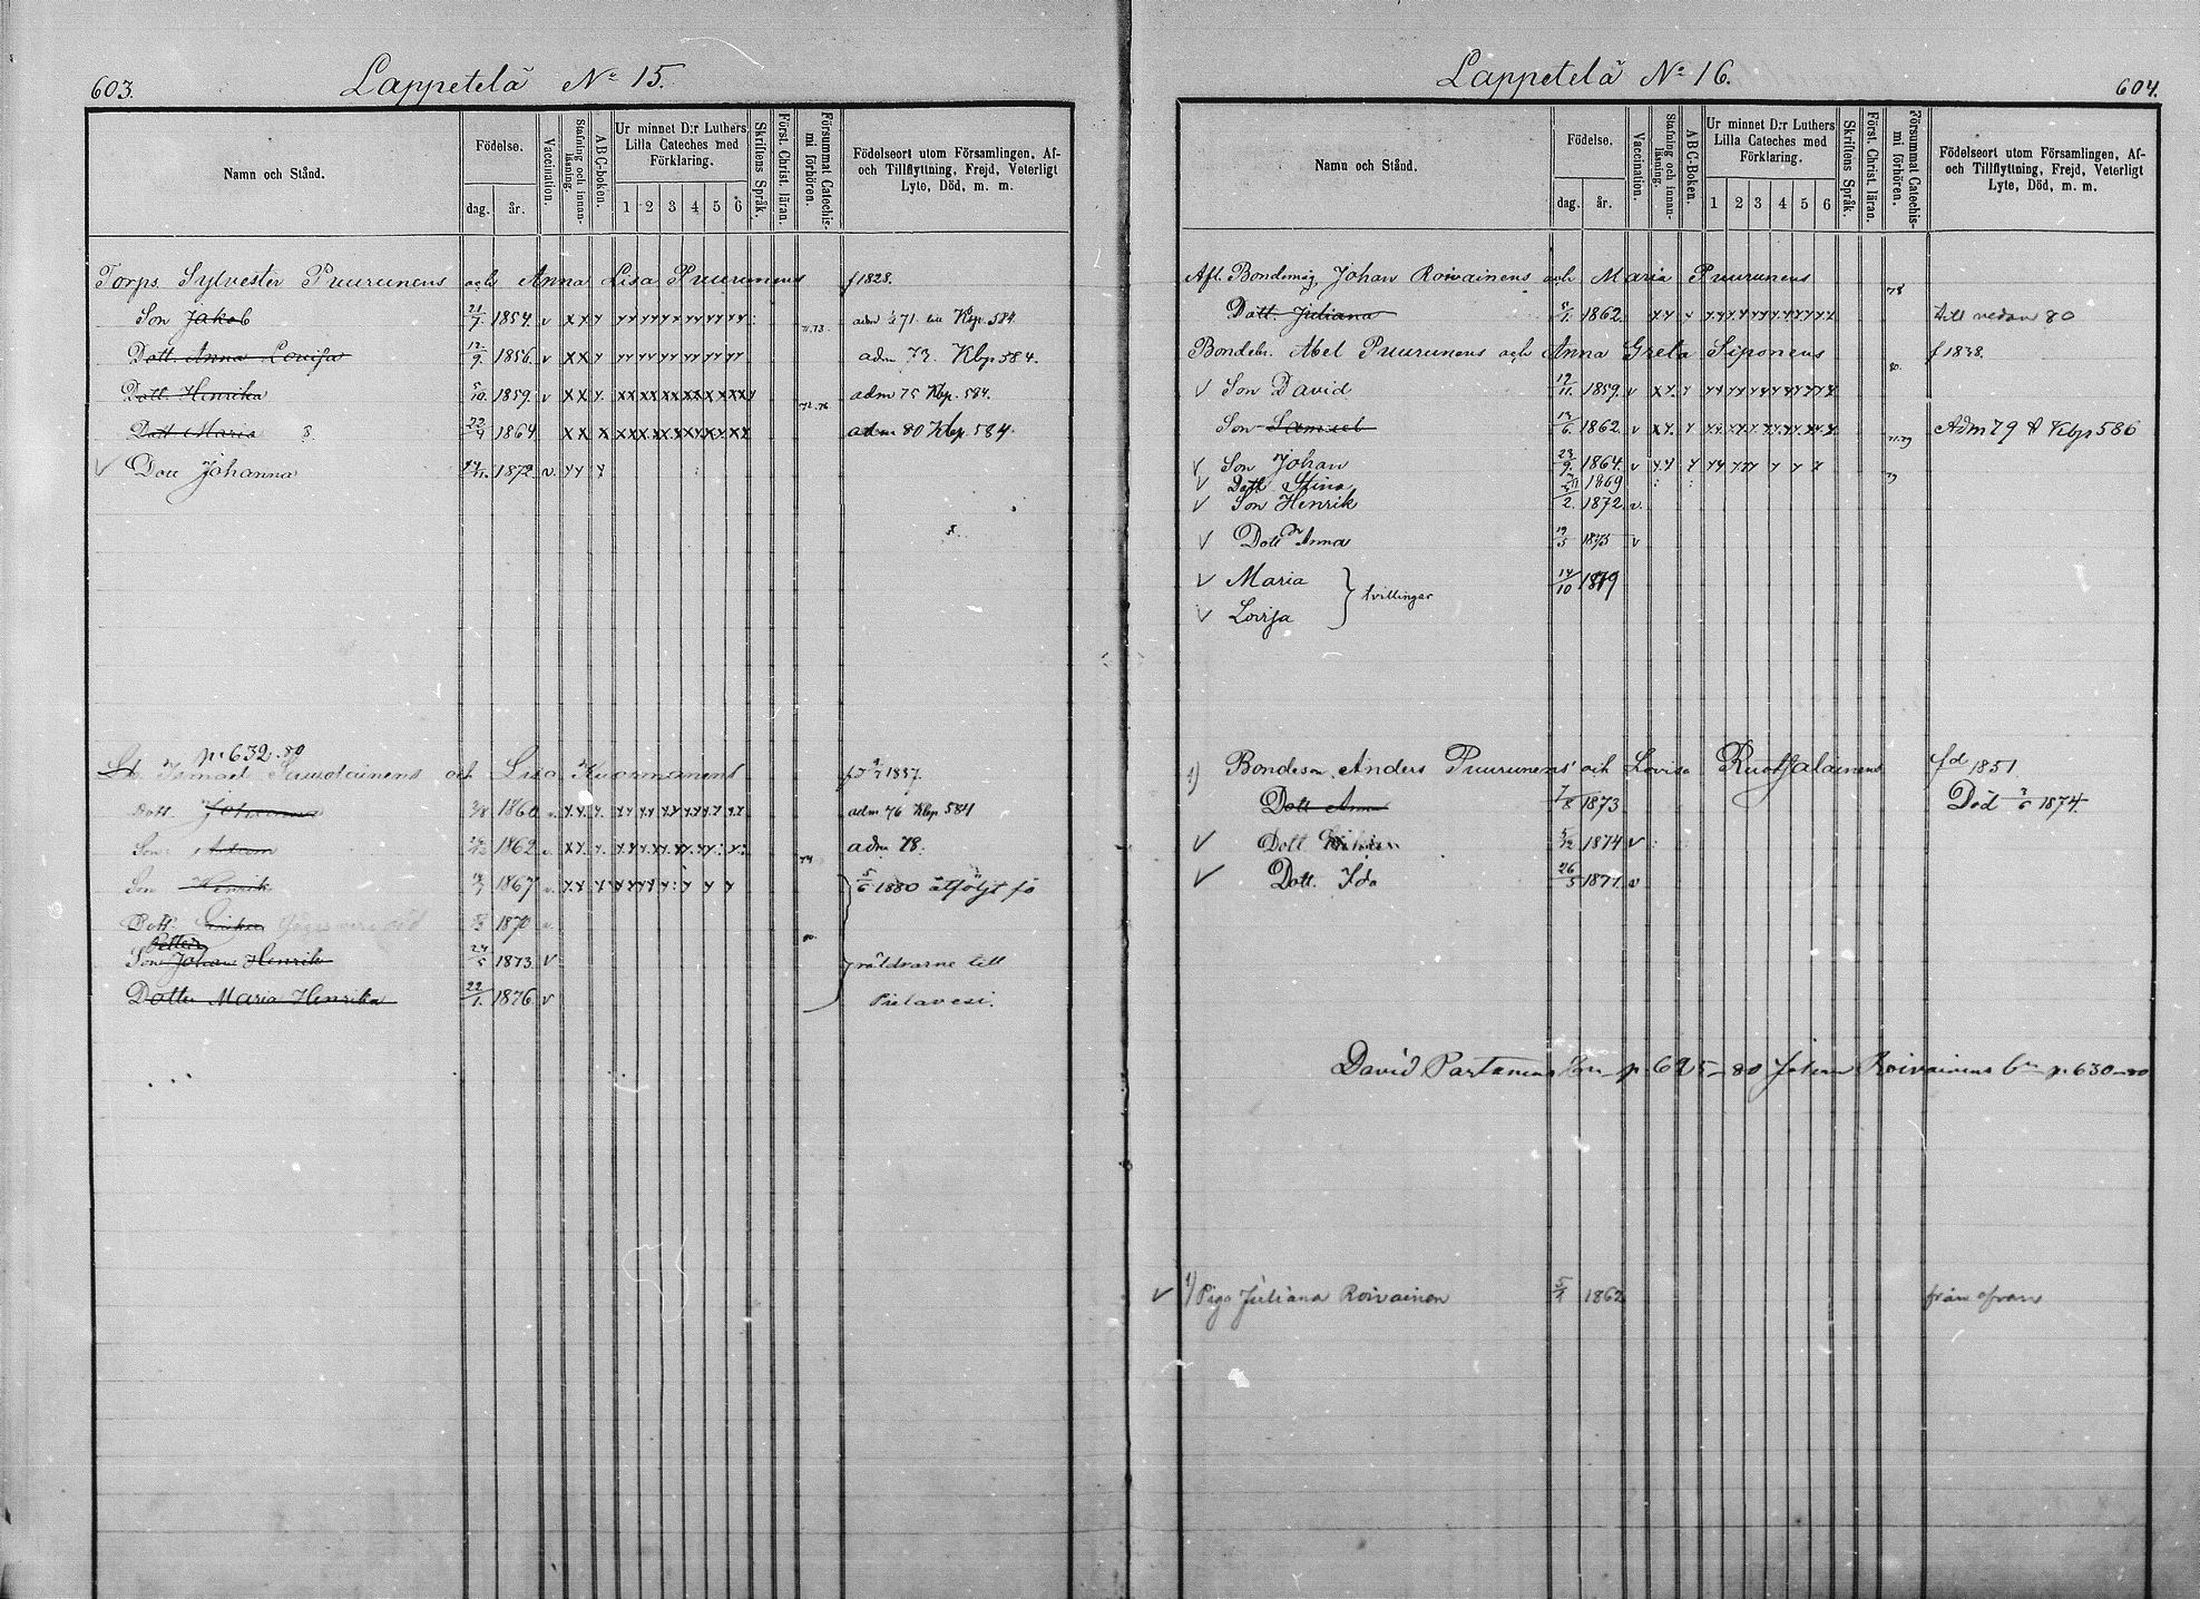 603.
Lappetelä No 15.
Namn och Stånd.
Födelse.
dag. år.
Vaccination.
Stafning och innanläsning.
A B C-boken.
Ur minnet D:r Luthers Lilla Cateches med Förklaring.
1 2 3 4 5 6
Skriftens Språk.
Först. Christ. läran.
Försummat Catechismi förhören.
Födelseort utom Församlingen, Af- och Tillflyttning, Frejd, Veterligt Lyte, Död, m. m.
Torps. Sylvester Puurunens och Anna Lisa Puurunens f 1828.
Son Jakob 21/7. 1854. v x x y 71.73 adm 71 till Kbp. 584
Dott. Anna Lovisa 12/9. 1856. v x x y adm 73. Kbp 584.
Dott. Henrika 5/10. 1859. v x x y. adm 75 Kbp. 584.
Dott Maria 22/4 1864 x x x 72.76 adm 80 Kbp. 584.
√ Dott Johanna 1872 v. y y y
p. 632.80
Ismael Lisa 1837.
Dott. Johanna 1860 adm 76 Kbp 584
Son Adam 1862 adm 78.
Son Henrik 1867 5/6 1880 åtföljt fö
Dott. 1870
Petter
Son Johan Henrik 24/5 1873 v räldrarne till
Dotter Maria Henrika 22/1. 1876 v Pielavesi.
604.
Lappetelä No 16.
Namn och Stånd.
Födelse.
dag. år.
Vaccination.
Stafning och innanläsning.
A B C-Boken.
Ur minnet D:r Luthers Lilla Cateches med Förklaring.
1 2 3 4 5 6
Skriftens Språk.
Först. Christ. läran.
Försummat Catechismi förhören.
Födelseort utom Församlingen, Af- och Tillflyttning, Frejd, Veterligt Lyte, Död, m. m.
Afl. Bondemåg Johan Roivainens och Maria Puurunens
Dott. Juliana 5/1. 1862. 78 till nedan 80
Bondebr. Abel Puurunens och Anna Greta Siponens f 1838.
√ Son David 19/11. 1859. v 80.
Son Samuel 1862. v Adm 79 Kbp 586
√ Son Johan 23/9. 1864. v 79
√ Dott Stina 1869
√ Son Henrik 2. 1872 v.
√ Dott Anna 19/5 1875 v
√ Maria } tvillingar 14/10 1879
√ Lovisa
1) Bondeson Anders Puurunens och Lovisa Ruotsalainens fd 1851
Dott Anna 7/8 1873 Död 1874
√ Dott 1874 v
√ Dott. Ida 26/5 1877. v
David Partanens p. 625-80 Johan Roivainens p. 630-80
√ 1) Piga Juliana Roivainen 5/1 1862 från ofvan